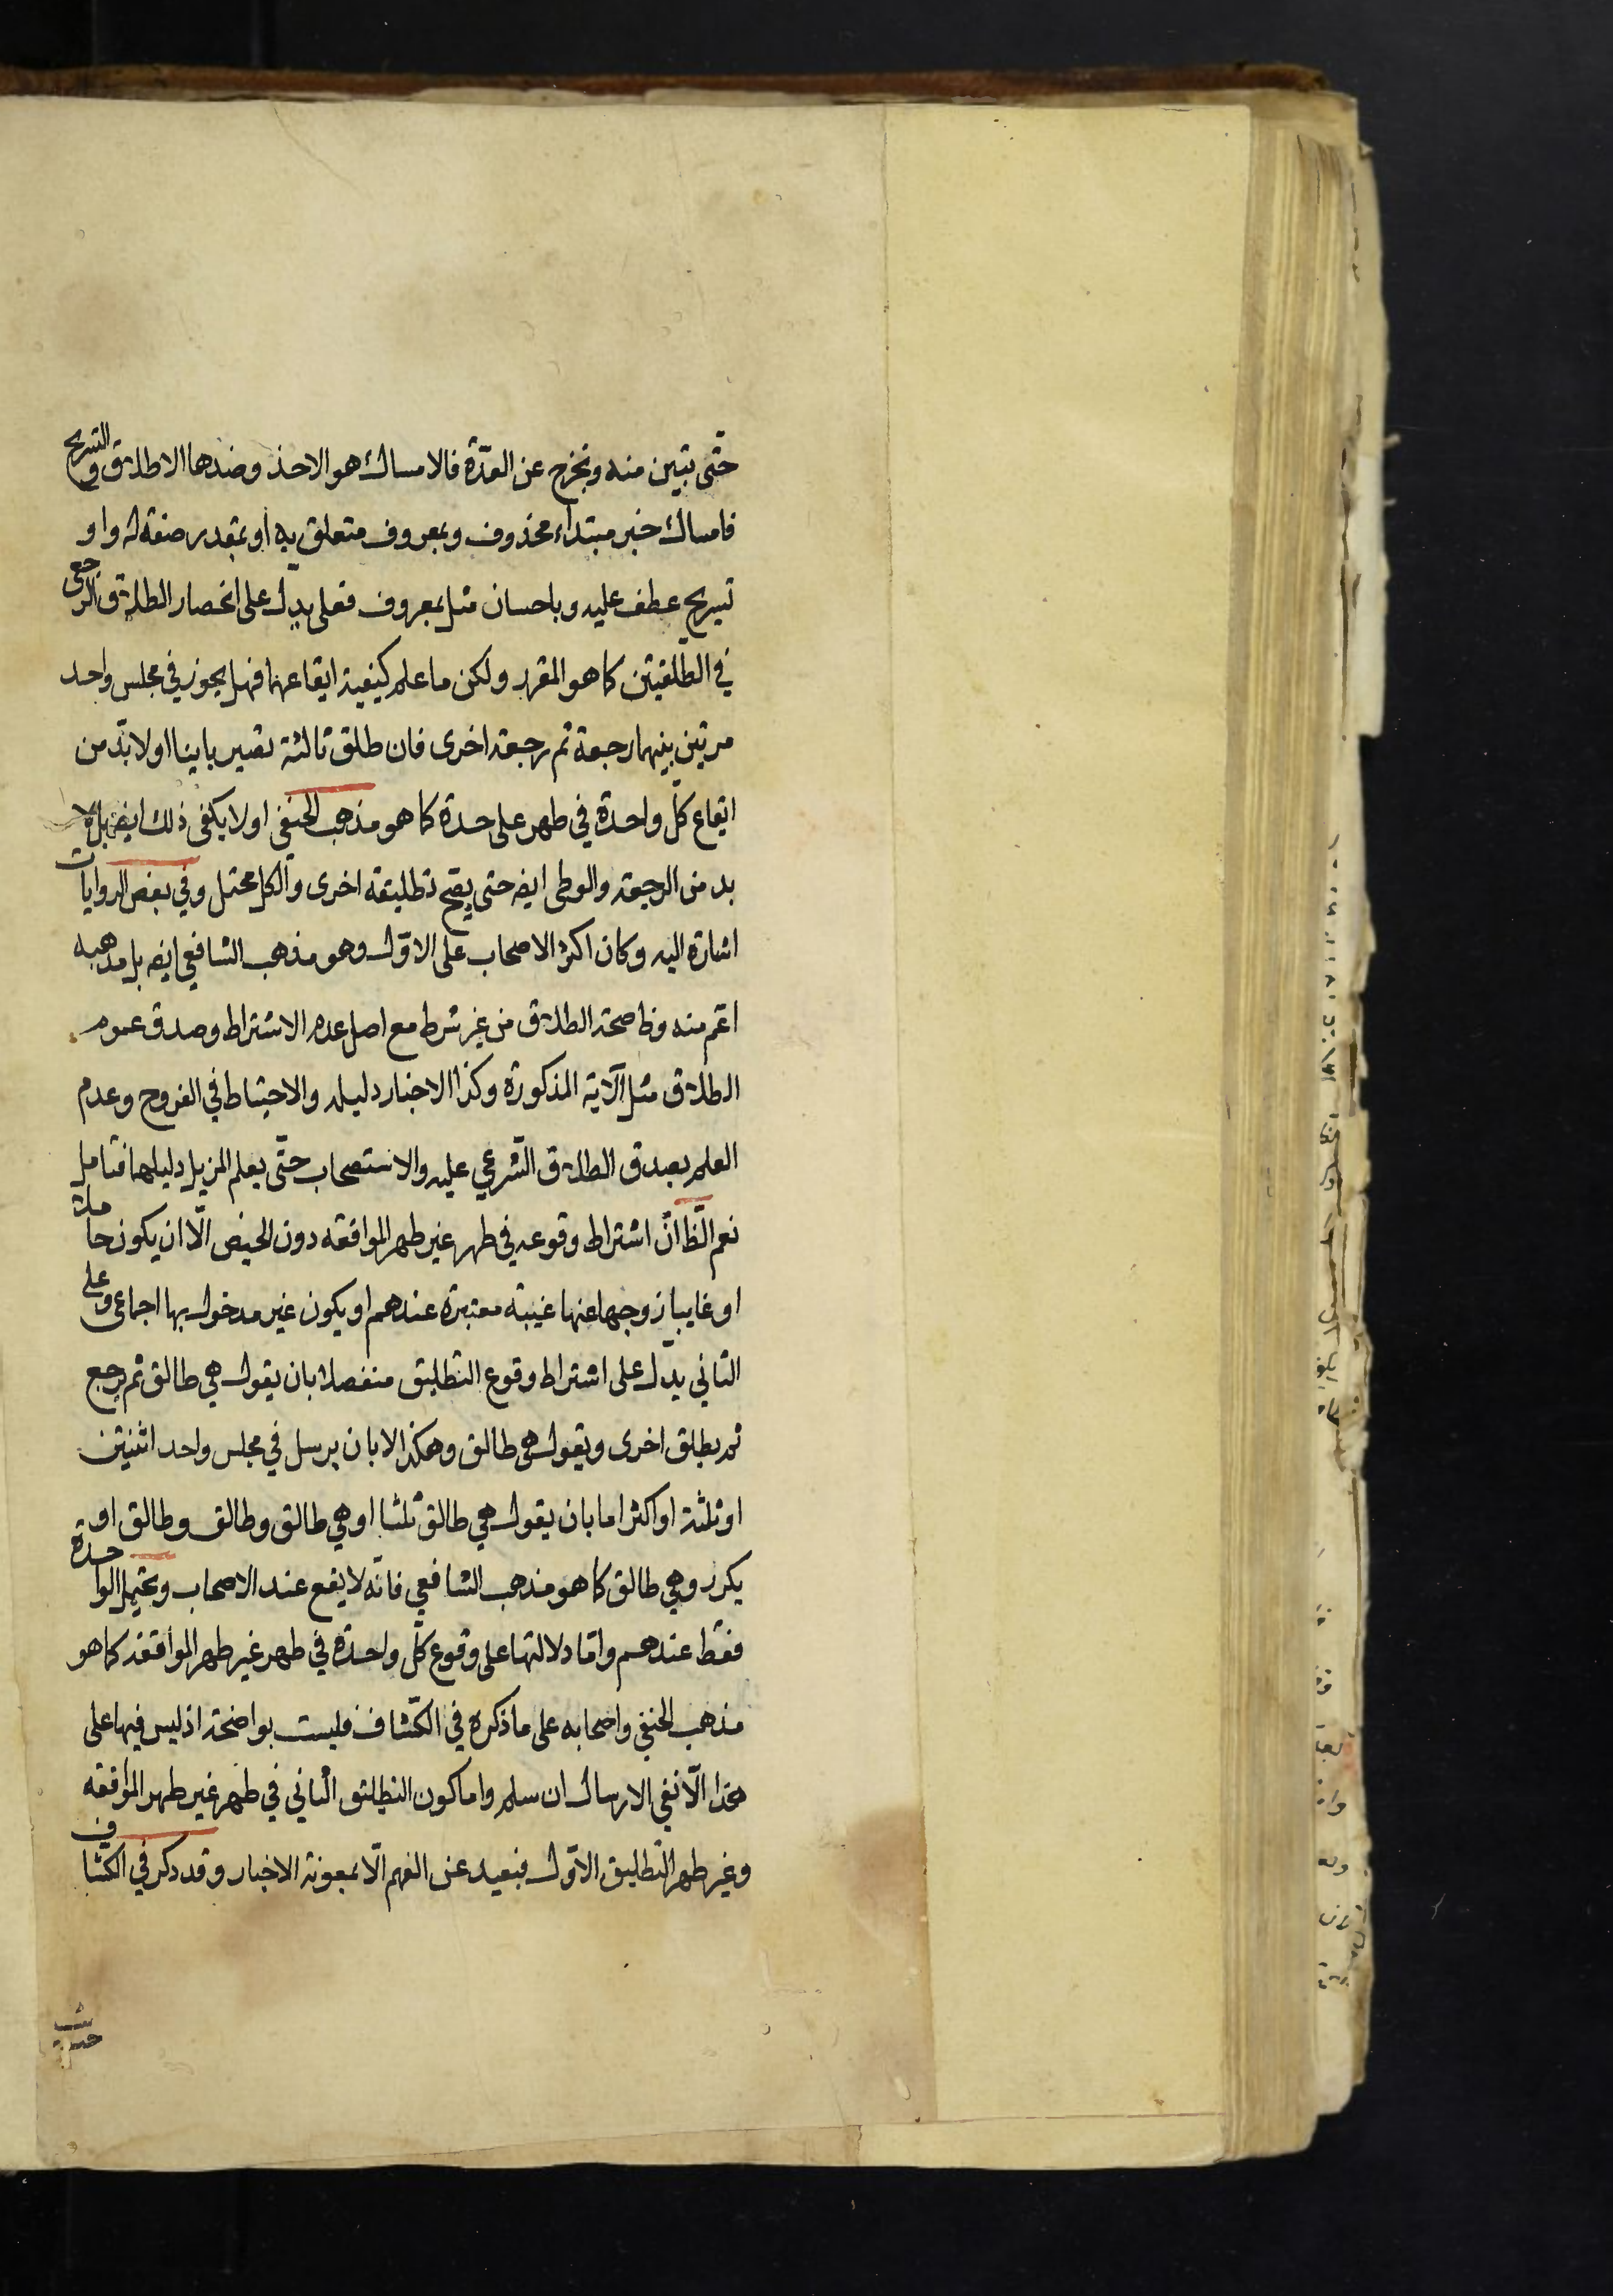 حتّى تبين منه وتخرج عن العدّة فالامساك هو الاخذ وضدها الاطلاق والتسريح
فامساك خبر مبتداء محذوف وبمعروف متعلق به او بمقدر صفة له واو
تسريح عطف عليه وباحسان مثل بمعروف فعلى يدل على انحصار الطلاق الرجعى
في الطلقتين كما هو المقرر ولكن ما علم كيفية ايقاعهما فهل يجوز في مجلس واحد
مرتين بينهما رجعة ثم رجعة اخرى فان طلق ثالثة تصير باينا او لا بدّ من
ايقاع كلّ واحدة في طهر على حدة كما هو مذهب الحنفى او لا يكفى ذلك ايض بل لا
بد من الرجعة والوطى ايض حتى يصح تطليقة اخرى والكل محتمل وفي بعض الروايات
اشارة اليه وكان اكثر الاصحاب على الاوّل وهو مذهب الشافعي ايض بل مذهبه
اعم منه وظ صحة الطلاق من غير شرط مع اصل عدم الاشتراط وصدق عموم
الطلاق مثل الآية المذكورة وكذا الاخبار دليله والاحتياط في الفروج وعدم
العلم بصدق الطلاق الشرعي عليه والاستصحاب حتّى يعلم المزيل دليلهما فتامل
نعم الظ انّ اشتراط وقوعه في طهر غير طهر المواقعه دون الحيض الّا ان يكون حاملا
او غايبا زوجها عنها غيبته معتبرة عندهم او يكون غير مدخول بها اجماعى وعلى
الثاني يدل على اشتراط وقوع التطليق منفصلا بان يقول هي طالق ثم يرجع
ثم يطلق اخرى ويقول هى طالق وهكذا لا بان يرسل في مجلس واحد اثنتين
او ثلثة او اكثر اما بان يقول هي طالق ثلثا او هي طالق وطالق وطالق او
يكرر وهي طالق كما هو مذهب الشافعي فانّه لا يقع عند الاصحاب ويحتمل الواحدة
فقط عندهم وامّا دلالتها على وقوع كلّ واحدة في طهر غير طهر المواقعة كما هو
مذهب الحنفي واصحابه على ما ذكره في الكشّاف فليست بواضحة اذ ليس فيها على
هذا الّا نفي الارسال ان سلم واما كون التطليق الثاني في طهر غير طهر المواقعه
وغير طهر التطليق الاوّل فبعيد عن الفهم الّا بمعونة الاخبار وقد ذكر في الكشاف